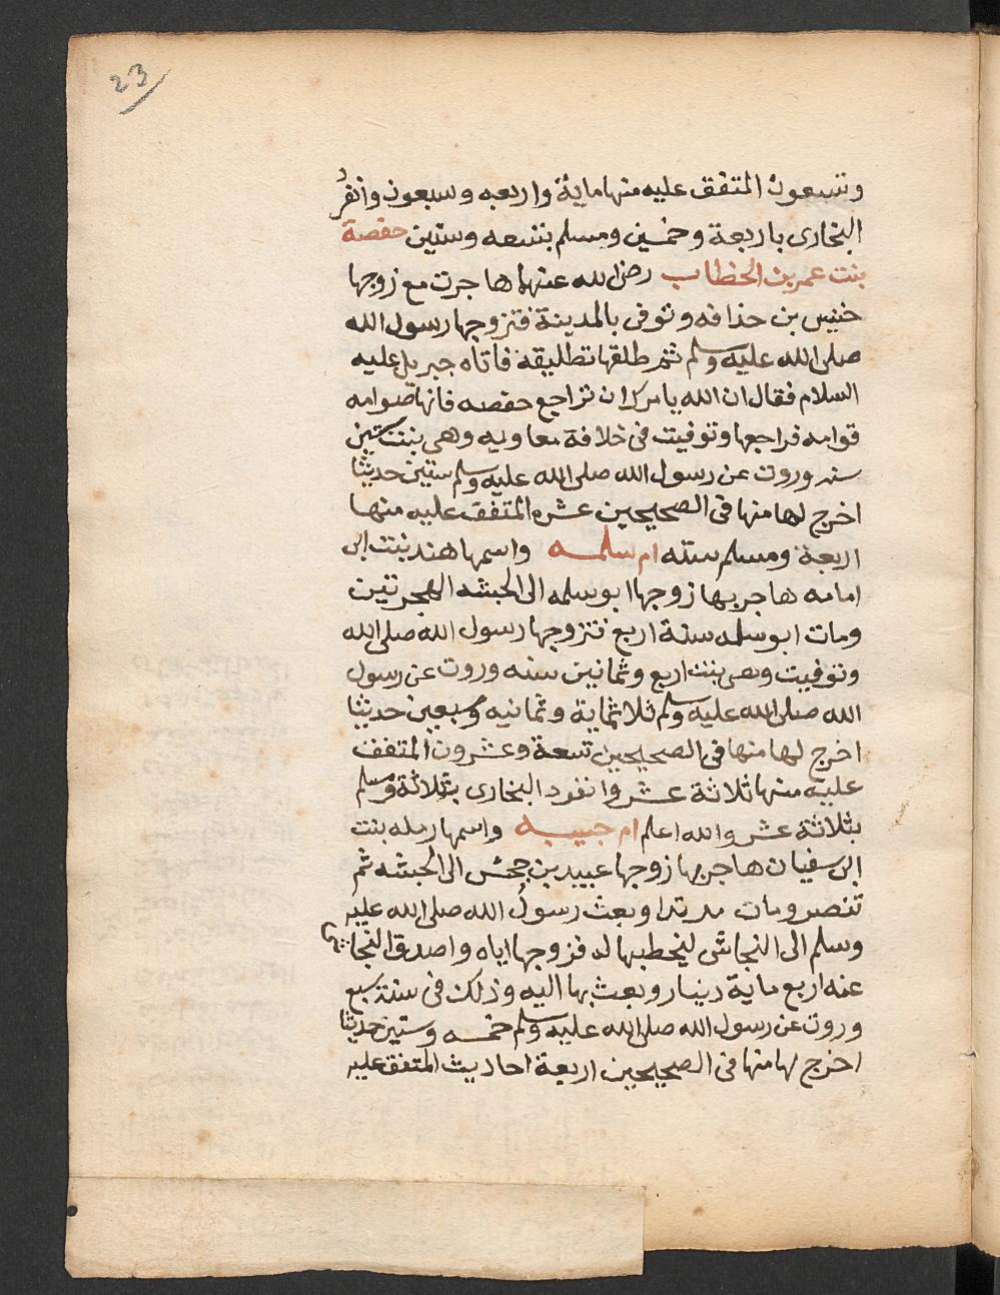 23
وتسعون المتفق عليه منها ماية واربعه وسبعون وانفرد
البخارى باربعة وخمسين ومسلم بتسعه وستين حفصة
بنت عمر بن الخطاب رضى الله عنهما هاجرت مع زوجها
خنيس بن حذافه وتوفى بالمدينة فتزوجها رسول الله
صلى الله عليه وسلم ثم طلقها تطليقة فاتاه جبريل عليه
السلام فقال ان الله يامرك ان تراجع حفصه فانها صوامه
قوامه فراجعها وتوفيت فى خلافة معاويه وهى بنت ستين
سنه وروت عن رسول الله صلى الله عليه وسلم ستين حديثا
اخرج لها منها فى الصحيحين عشره المتفق عليه منها
اربعة ومسلم سته ام سلمه واسمها هند بنت ابى
امامه هاجر بها زوجها ابو سلمه الى الحبشه الهجرتين
ومات ابو سلمه سنة اربع فتزوجها رسول الله صلى الله
وتوفيت وهى بنت اربع وثمانين سنه وروت عن رسول
الله صلى الله عليه وسلم ثلاثماية وثمانيه وسبعين حديثا
اخرج لها منها فى الصحيحين تسعة وعشرون المتفق
عليه منها ثلاثة عشر وانفرد البخارى بثلاثة ومسلم
بثلاثة عشر والله اعلم ام حبيبه واسمها رمله بنت
ابى سفيان هاجر بها زوجها عبيد بن جحش الى الحبشه ثم
تنصر ومات مرتدا وبعث رسول الله صلى الله عليه
وسلم الى النجاشى ليخطبها له فزوجها اياه واصدق النجاشى
عنه اربع ماية دينار وبعث بها اليه وذلك فى سنة سبع
وروت عن رسول الله صلى الله عليه وسلم خمسه وستين حديثا
اخرج لها منها فى الصحيحين اربعة احاديث المتفق عليه